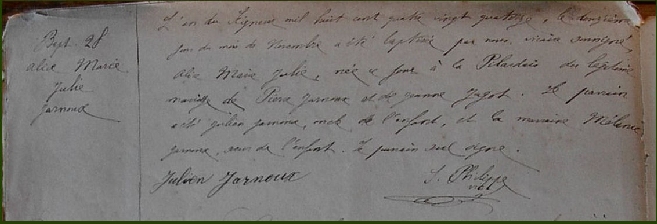 Bapt. 28
Alice Marie
Julie
Jarnoux
L'an du Seigneur mil huit cent quatre vingt quatorze, le douzième
jour du mois de Novembre a été baptisée par nous, vicaire soussigné
Alice Marie Julie, née ce jour à la du légitime
mariage de Pierre Jarnoux et de Jeanne Jagot. Le parrain
a été Julien Jarnoux, oncle de l'enfant, et la marraine Mélanie
Jarnoux, sœur de l'enfant. Le parrain seul signe.
Julien Jarnoux
S. Philippe
vic.